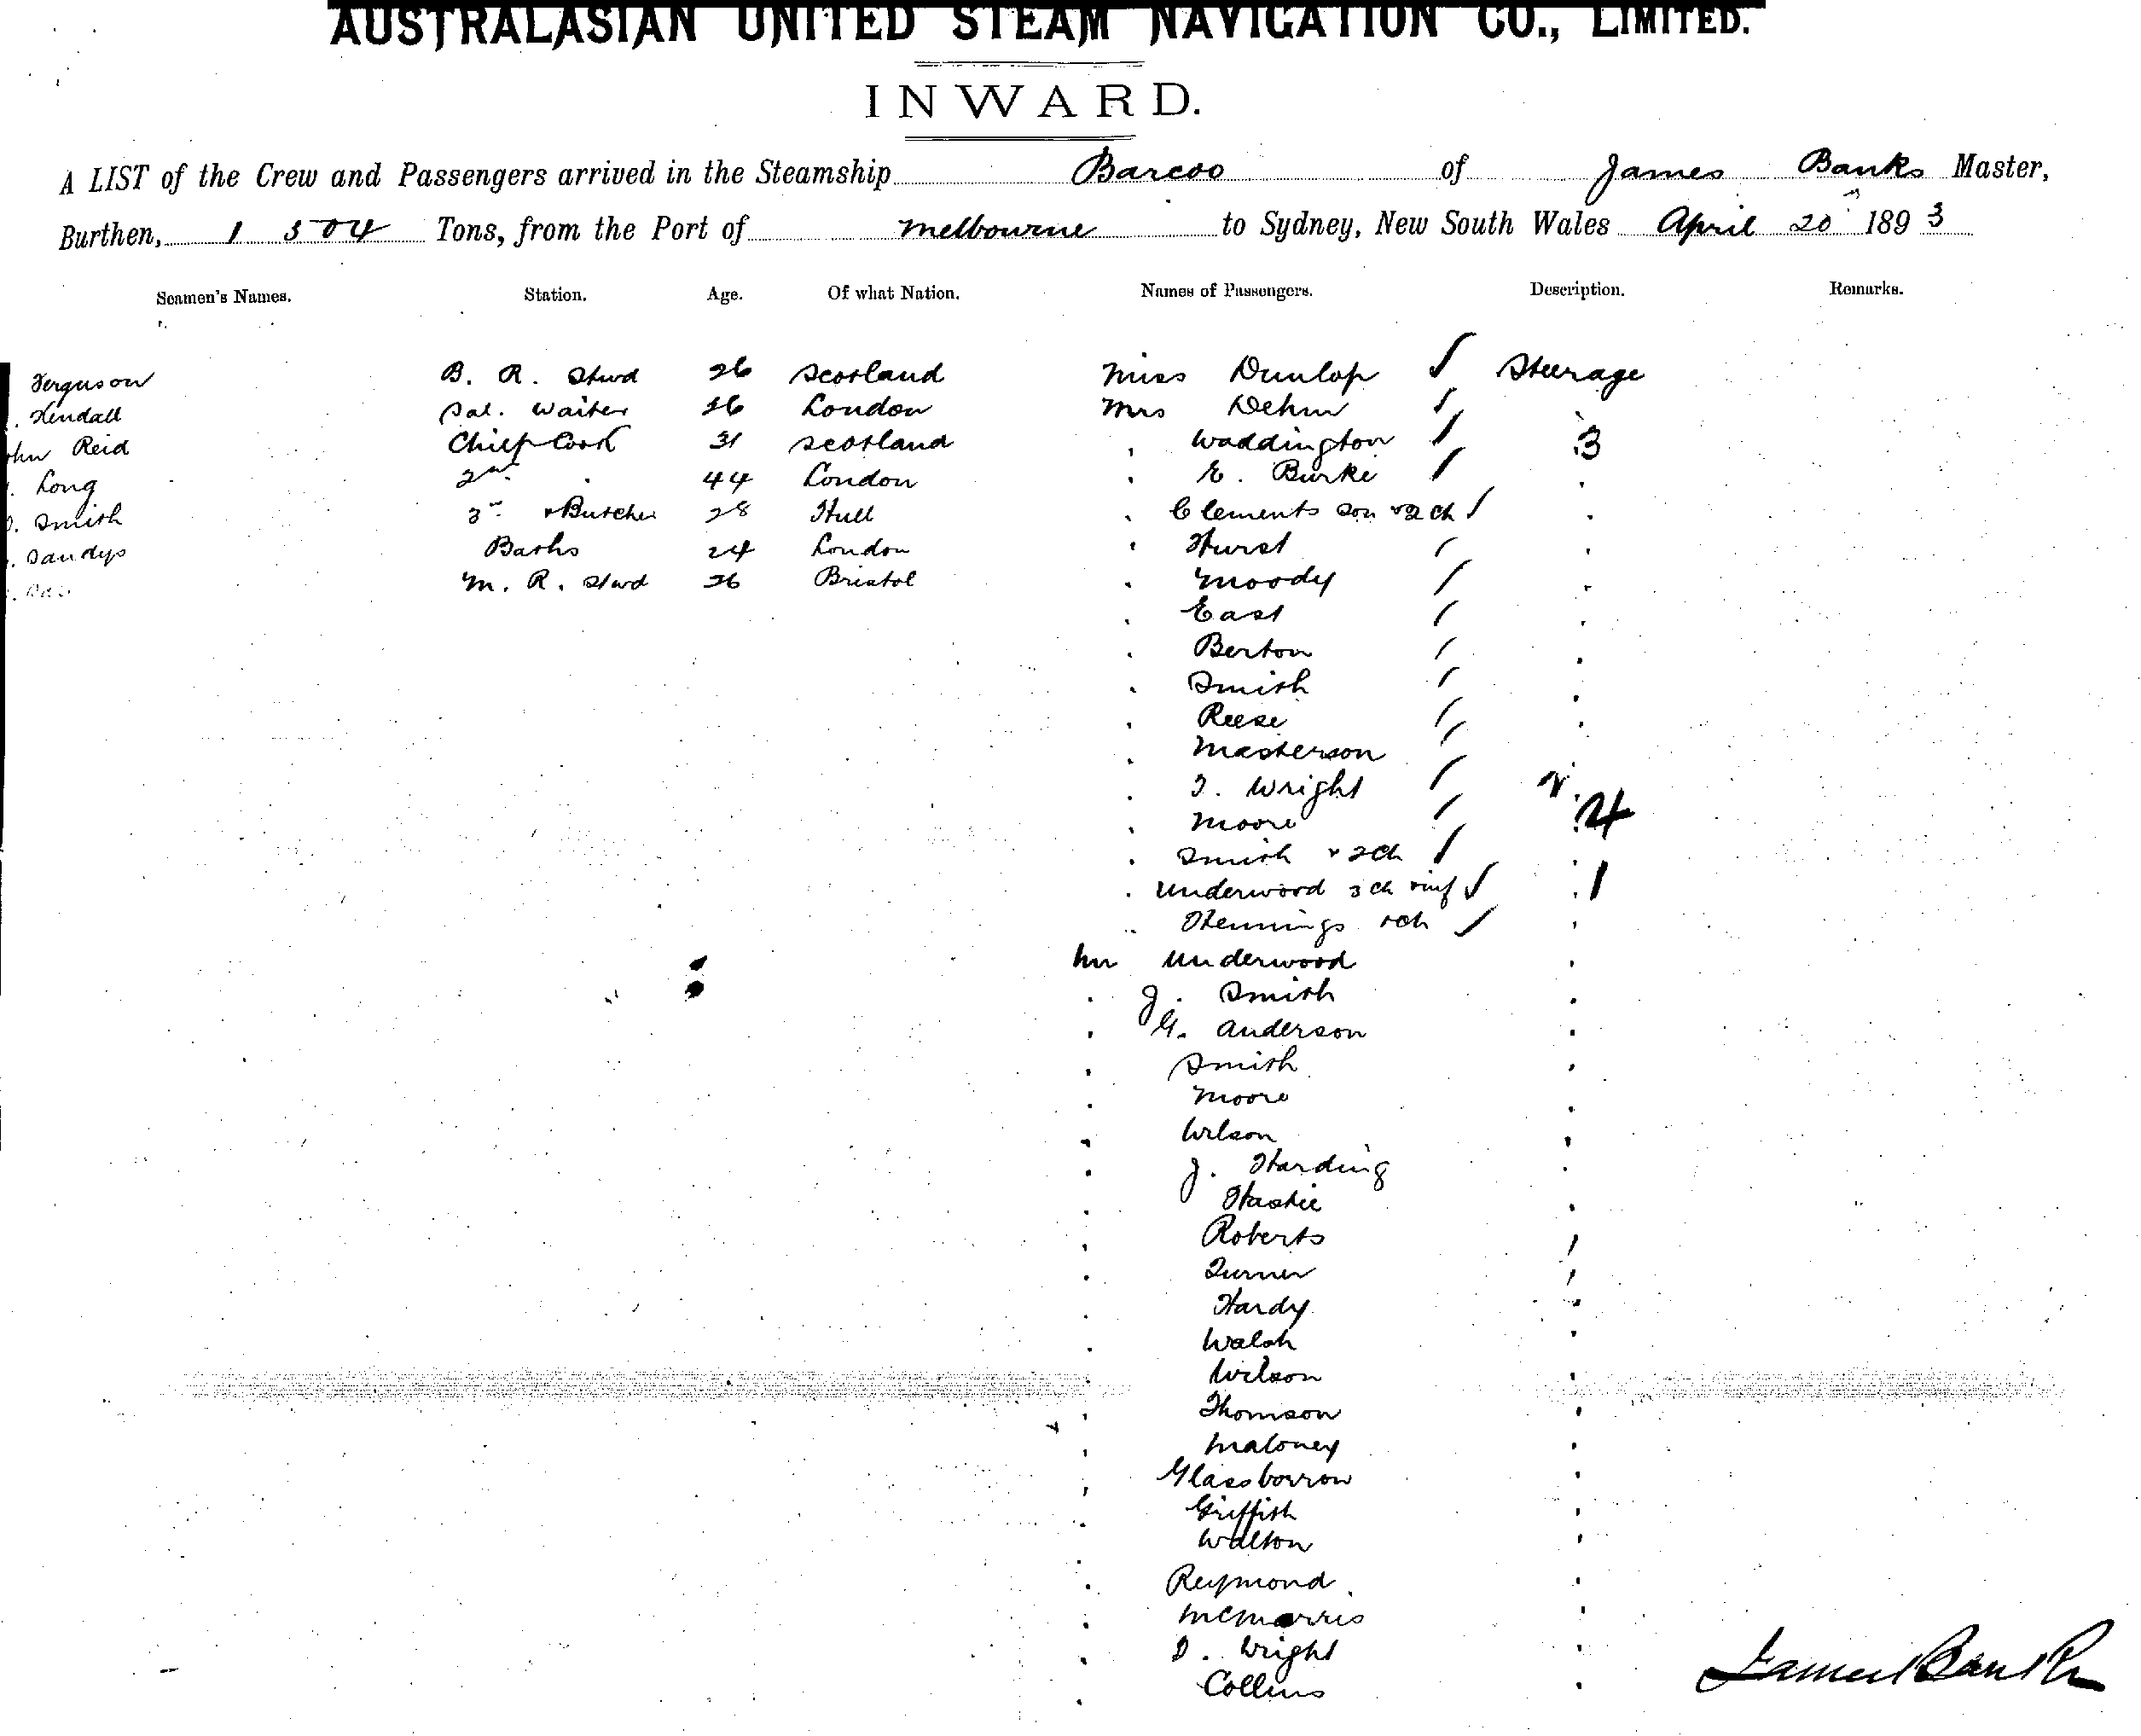 AUSTRALASIAN UNITED STEAM NAVIGATION CO., LIMITED.
INWARD.
A LIST of the Crew and Passengers arrived in the Steamship Barcoo of James Banks Master,
Burthen, 1504 Tons, from the Port of Melbourne to Sydney, New South Wales April 20 1893
Seamen's Names. Station. Age. Of what Nation. Names of Passengers. Description. Remarks.
Ferguson B. R. Stwd 26 Scotland Miss Dunlop Steerage
Kendall Sal. Waiter 26 London Mrs Dehm
Reid Chief Cook 31 Scotland Waddington 3
Long 2nd 44 London E. Burke
Smith 3rd & Butcher 28 Hull Clements son & 2 ch
Sandys Baths 24 London Hurst
M. R. Stwd 26 Bristol Moody
East
Berton
Smith
Reese
Masterson
Wright
Moore 4
Smith & 2 ch
Underwood 3 ch & inf 1
Hennings & ch
Mr Underwood
J. Smith
G. Anderson
Smith
Moore
Wilson
J. Harding
Hastie
Roberts
Turner
Hardy
Walsh
Wilson
Thomson
Maloney
Glassborrow
Griffith
Walton
Reymond
McMorris
D. Wright
Collins
James Banks